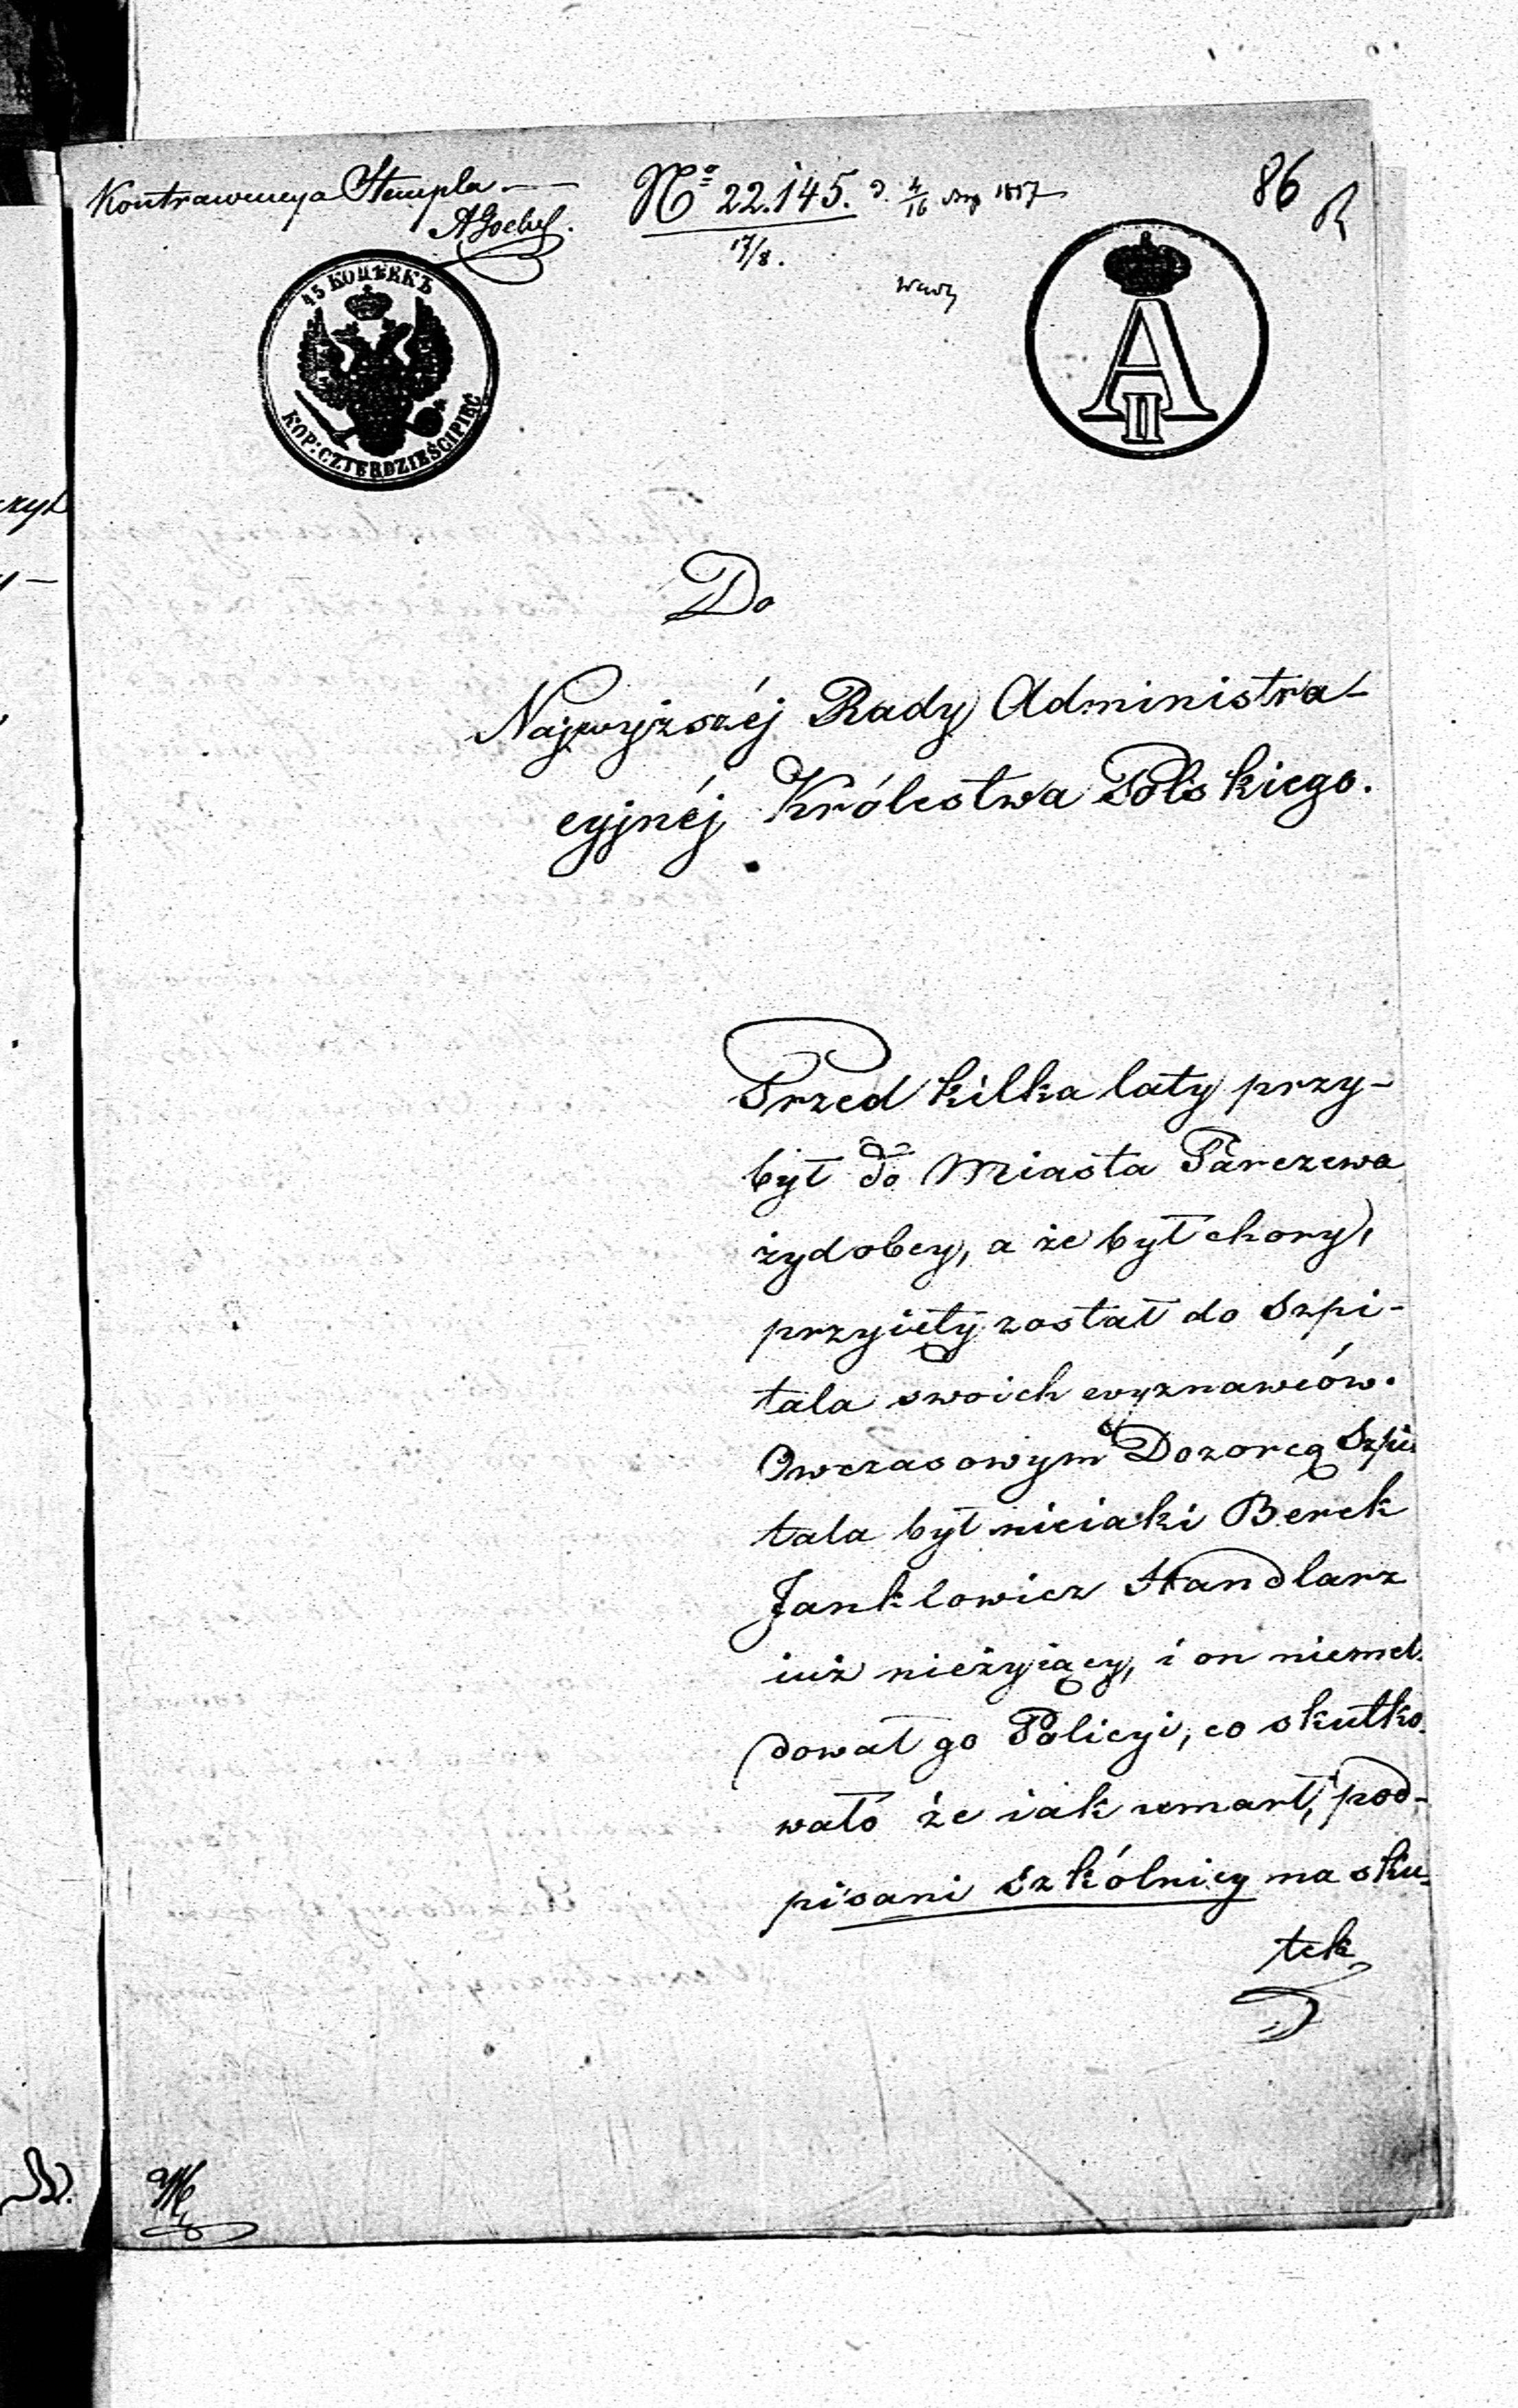 Kontrawencya Stempla —
AGoebel.
Nº 22.145. d. 4/16 Sierp 1857
17/8.
86
45 КОПѢЕКЪ
KOP: CZTERDZIEŚCI PIĘĆ
A II
Do
Najwyższéj Rady Administra-
cyjnéj Królestwa Polskiego.
Przed kilka laty przy-
był do Miasta Parczewa
żyd obcy, a że był chory,
przyięty został do Szpi-
tala swoich wyznawców.
Owczasowym Dozorcą Szpi
tala był nieiaki Berek
Janklowicz Handlarz
iuż nieżyiący, i on niemel-
dował go Policyi, co skutko-
wało że iak umarł, pod-
pisani szkólnicy na sku-
tek